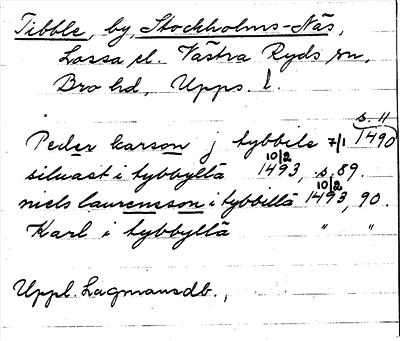 Tibble, by, Stockholms-Näs,
Lossa el. Västra Ryds sn,
Bro hd, Upps. l.
s. 11
Peder karson j tybbele 7/1 1490
siluast i tybbyllä 10/2 1493, s. 89.
niels laurensson i tybbillä 10/2 1493, 90.
Karl i tybbyllä " "
Uppl. Lagmansdb.,